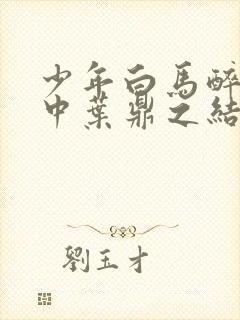 少年白馬醉
中葉鼎之結
劉玉才